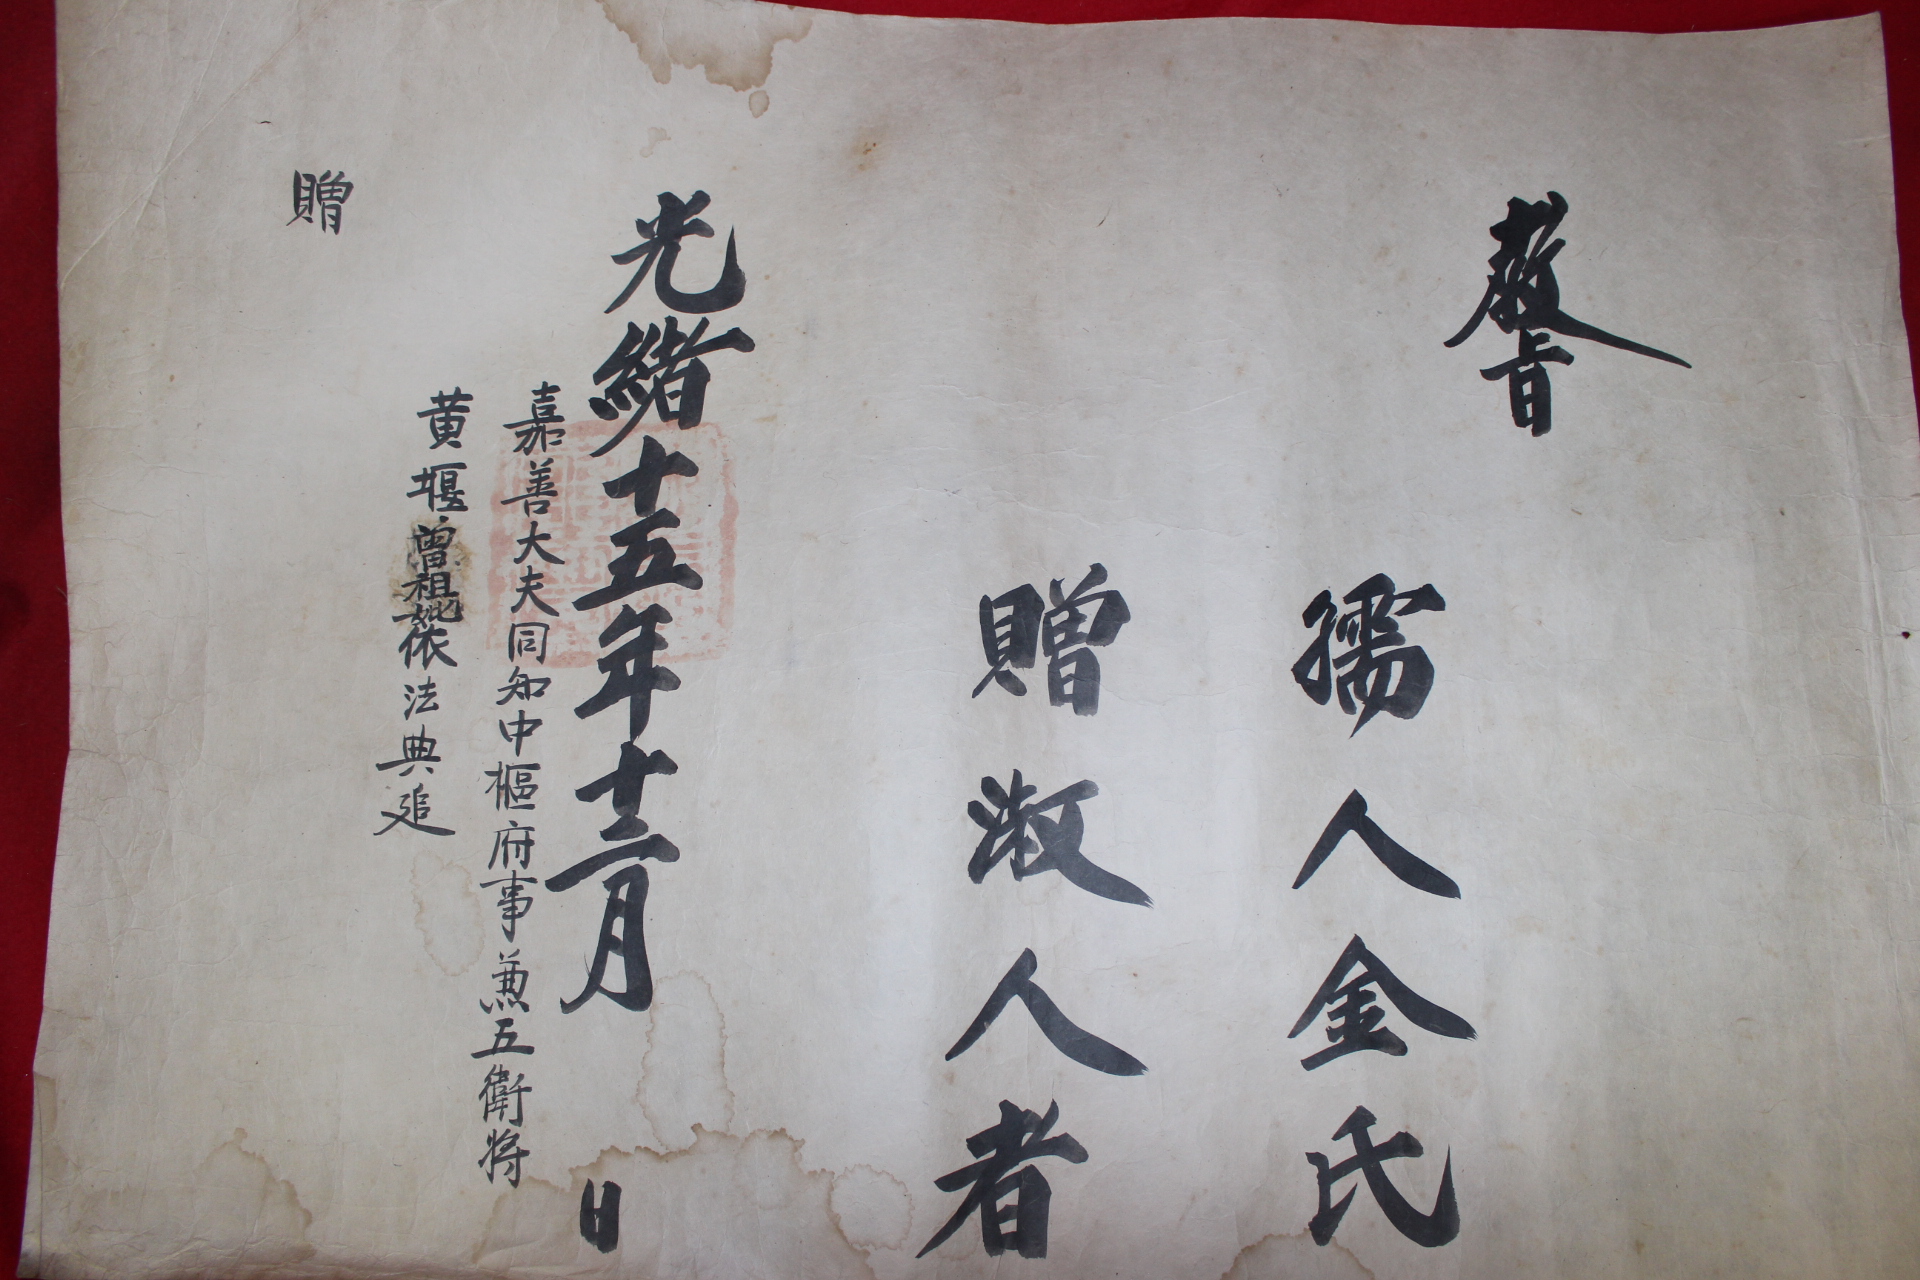 敎旨
孺人金氏
贈淑人者
光緖十五年十二月 日
嘉善大夫同知中樞府事兼五衛將
黃堰曾祖妣依法典追
贈